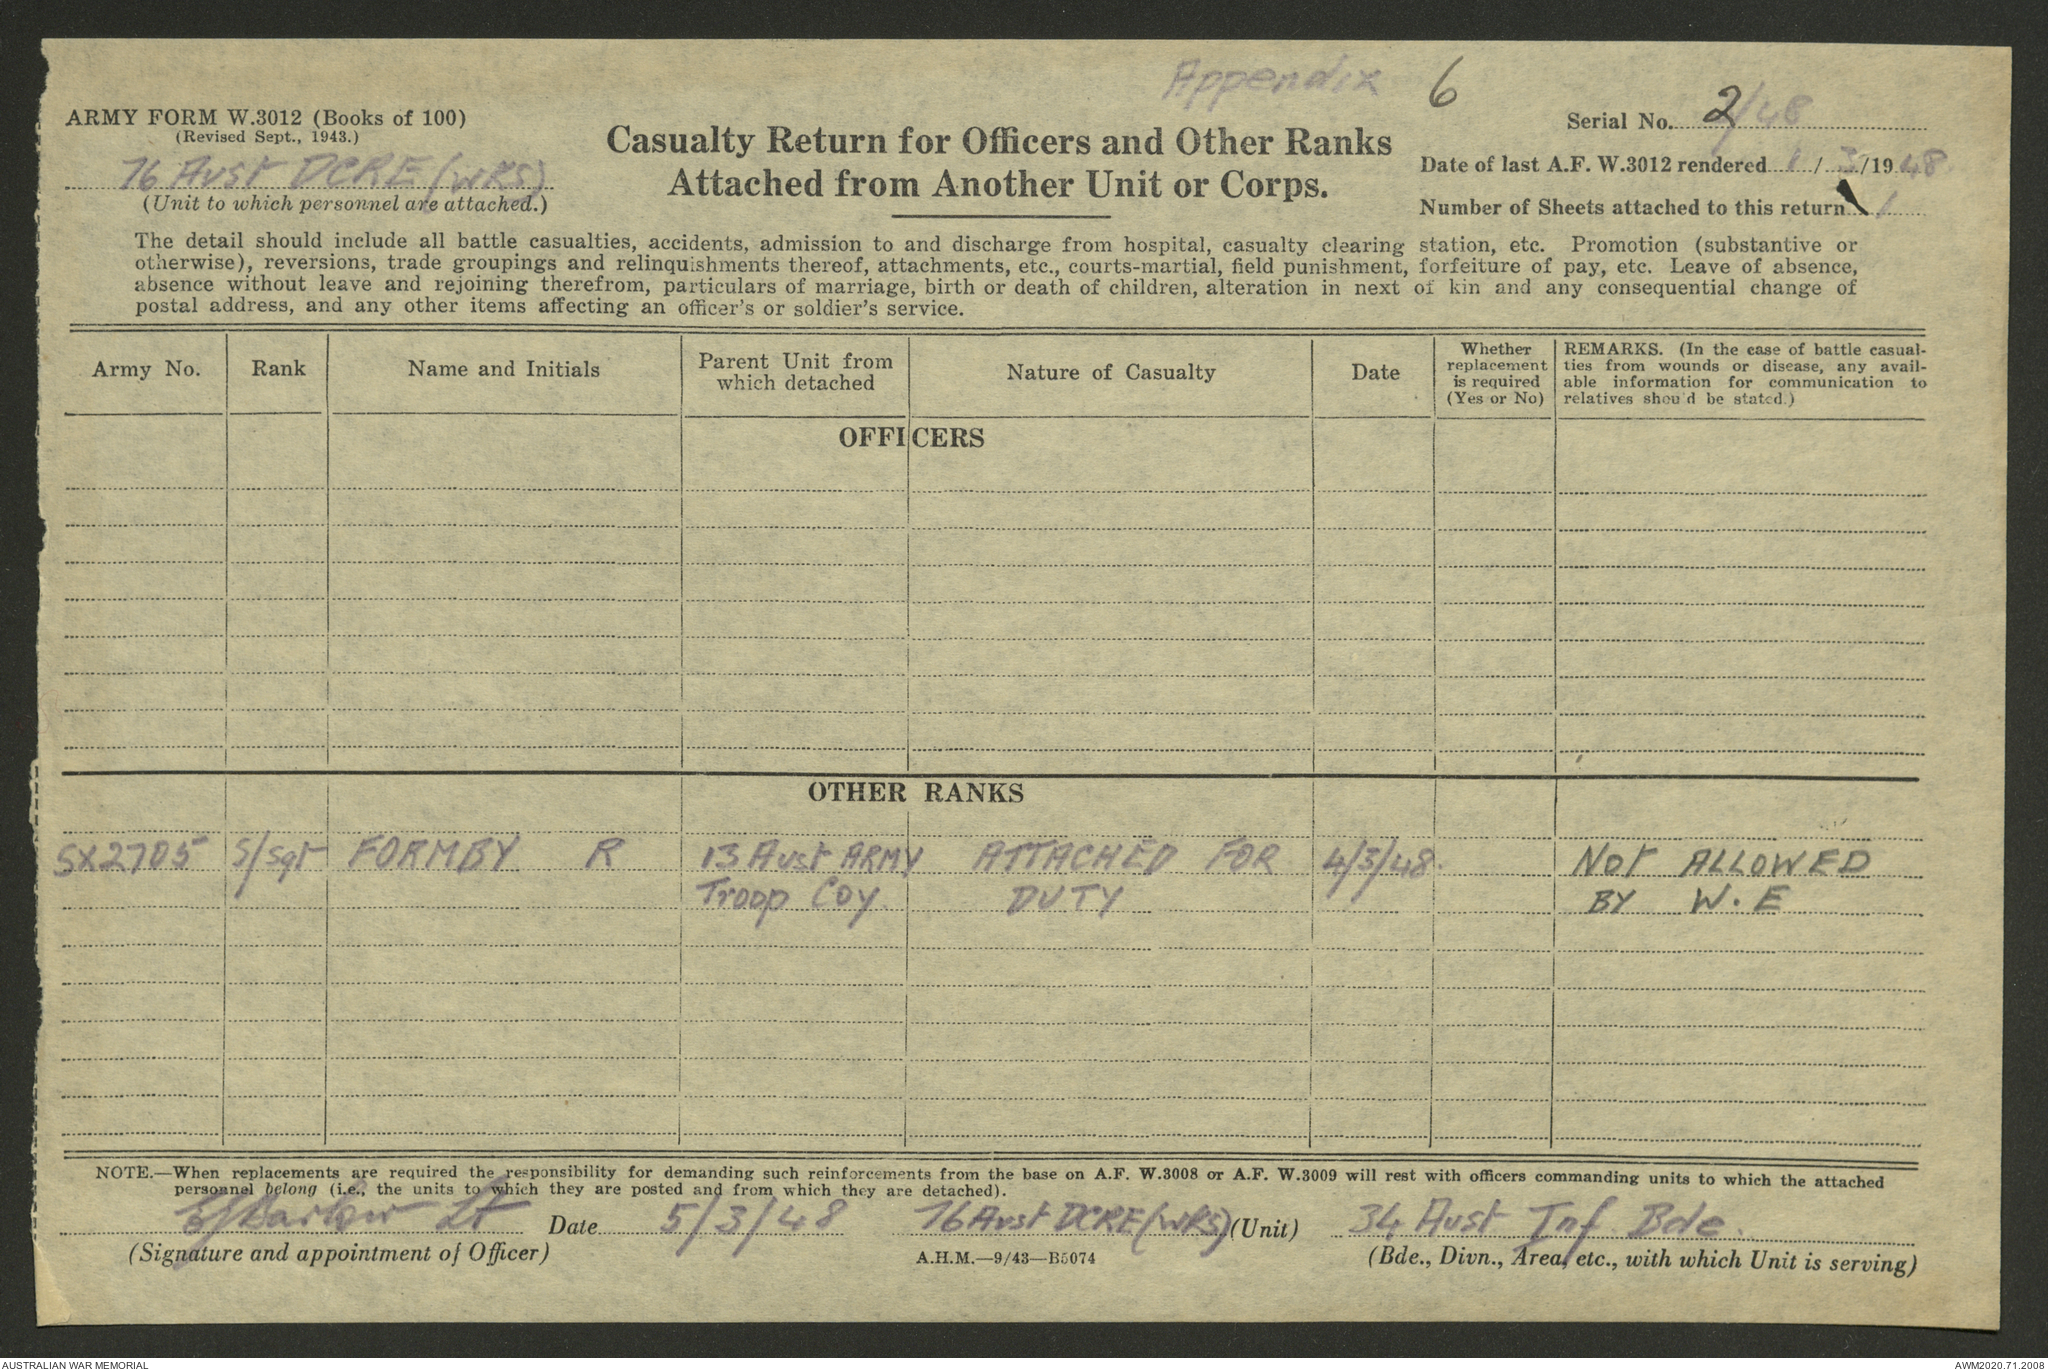 Appendix 6
ARMY FORM W.3012 (Books of 100)
(Revised Sept., 1943.)
76 Aust DCRE (WKS)
(Unit to which personnel are attached.)
Casualty Return for Officers and Other Ranks
Attached from Another Unit or Corps.
Serial No. 2/48
Date of last A.F. W.3012 rendered 1/3/1948
Number of Sheets attached to this return 1
The detail should include all battle casualties, accidents, admission to and discharge from hospital, casualty clearing station, etc. Promotion (substantive or
otherwise), reversions, trade groupings and relinquishments thereof, attachments, etc., courts-martial, field punishment, forfeiture of pay, etc. Leave of absence,
absence without leave and rejoining therefrom, particulars of marriage, birth or death of children, alteration in next of kin and any consequential change of
postal address, and any other items affecting an officer's or soldier's service.
Army No.
Rank
Name and Initials
Parent Unit from
which detached
Nature of Casualty
Date
Whether
replacement
is required
(Yes or No)
REMARKS. (In the case of battle casual-
ties from wounds or disease, any avail-
able information for communication to
relatives should be stated.)
OFFICERS
OTHER RANKS
SX2705 S/Sgt FORMBY R 13 Aust ARMY ATTACHED FOR 4/3/48. NOT ALLOWED
Troop Coy. DUTY BY W.E
NOTE.—When replacements are required the responsibility for demanding such reinforcements from the base on A.F. W.3008 or A.F. W.3009 will rest with officers commanding units to which the attached
personnel belong (i.e., the units to which they are posted and from which they are detached).
Lt Date 5/3/48 76 Aust DCRE (WKS) (Unit) 34 Aust Inf Bde.
(Signature and appointment of Officer)
A.H.M.—9/43—B5074
(Bde., Divn., Area, etc., with which Unit is serving)
AUSTRALIAN WAR MEMORIAL
AWM2020.71.2008